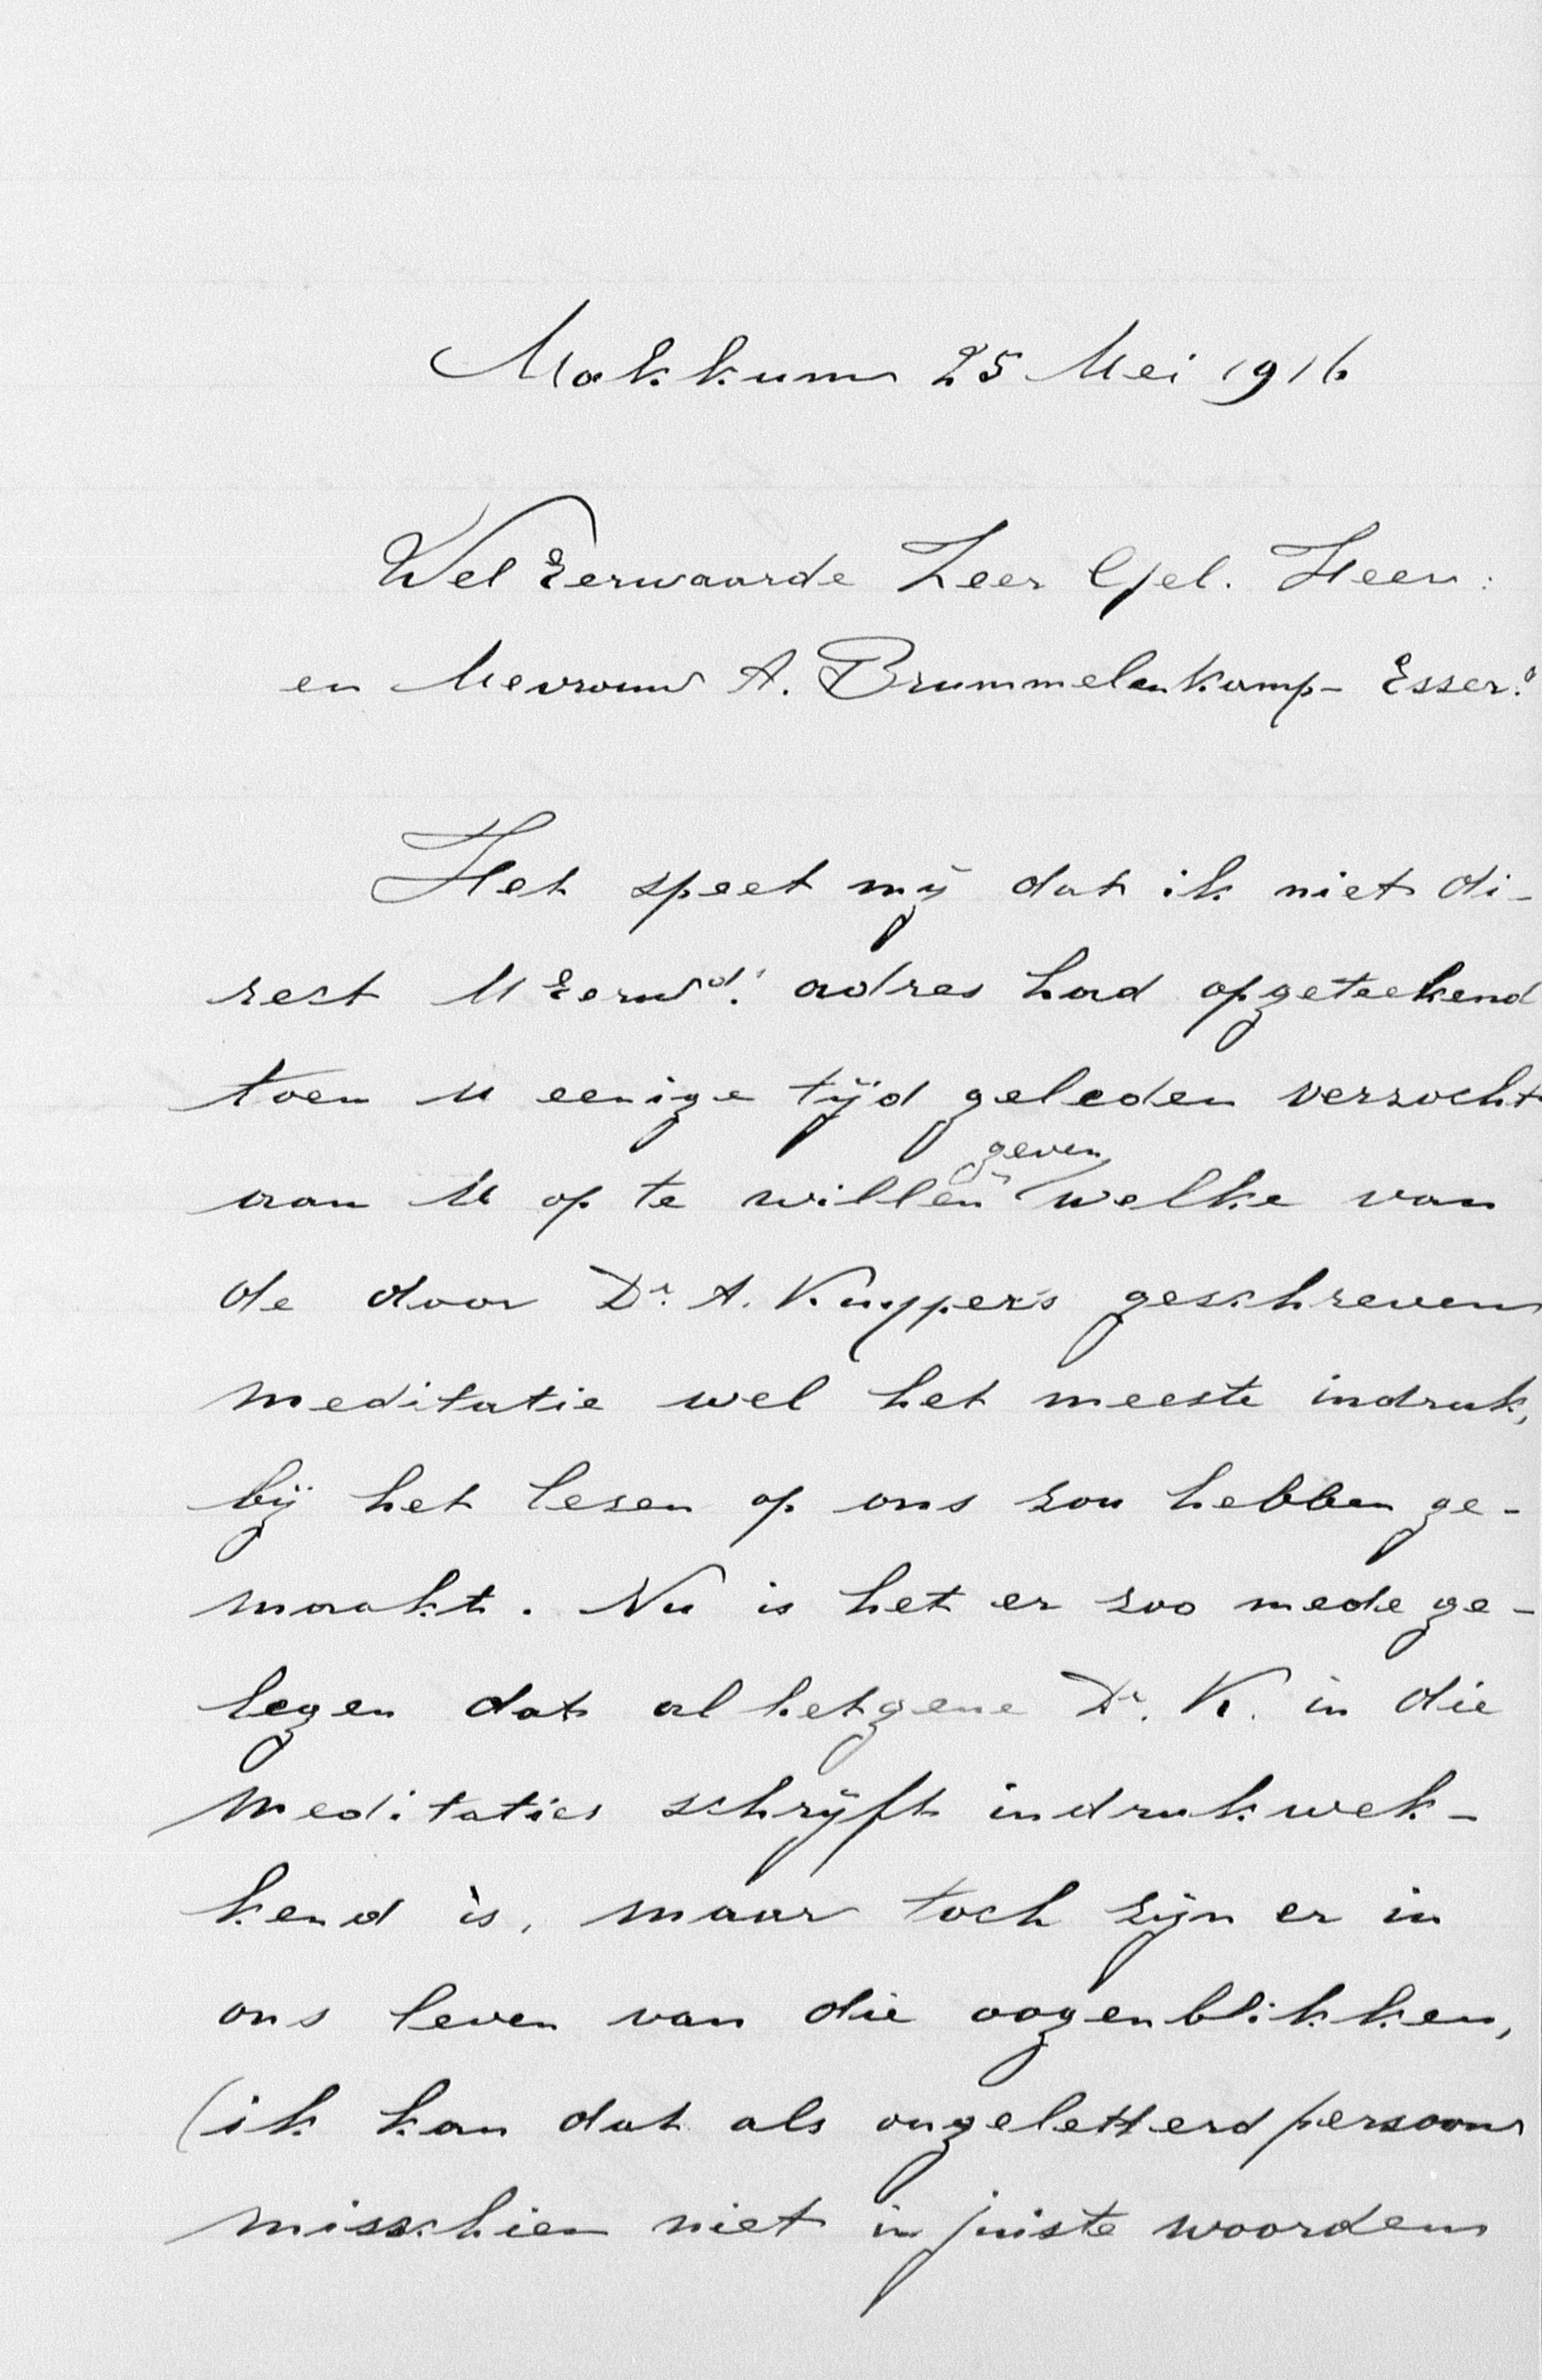 Makkum 25 Mei 1916
Wel Eerwaarde Zeer Gel. Heer:
en Mevrouw A. Brummelenkamp- Esser:
Het speet mij dat ik niet di-
rect U Eerwd: adres had opgeteekend
toen u eenige tijd geleden verzocht
geven
aan U op te willen welke van
de door Dr. A. Kuyper's geschreven
meditatie wel het meeste indruk,
bij het lezen op ons zou hebben ge-
maakt. Nu is het er zoo mede ge-
legen dat al hetgene Dr. K. in die
meditaties schrijft indrukwek-
kend is, maar toch zijn er in
ons leven van die oogenblikken,
(ik kan dat als ongeletterd persoon
misschien niet in juiste woorden